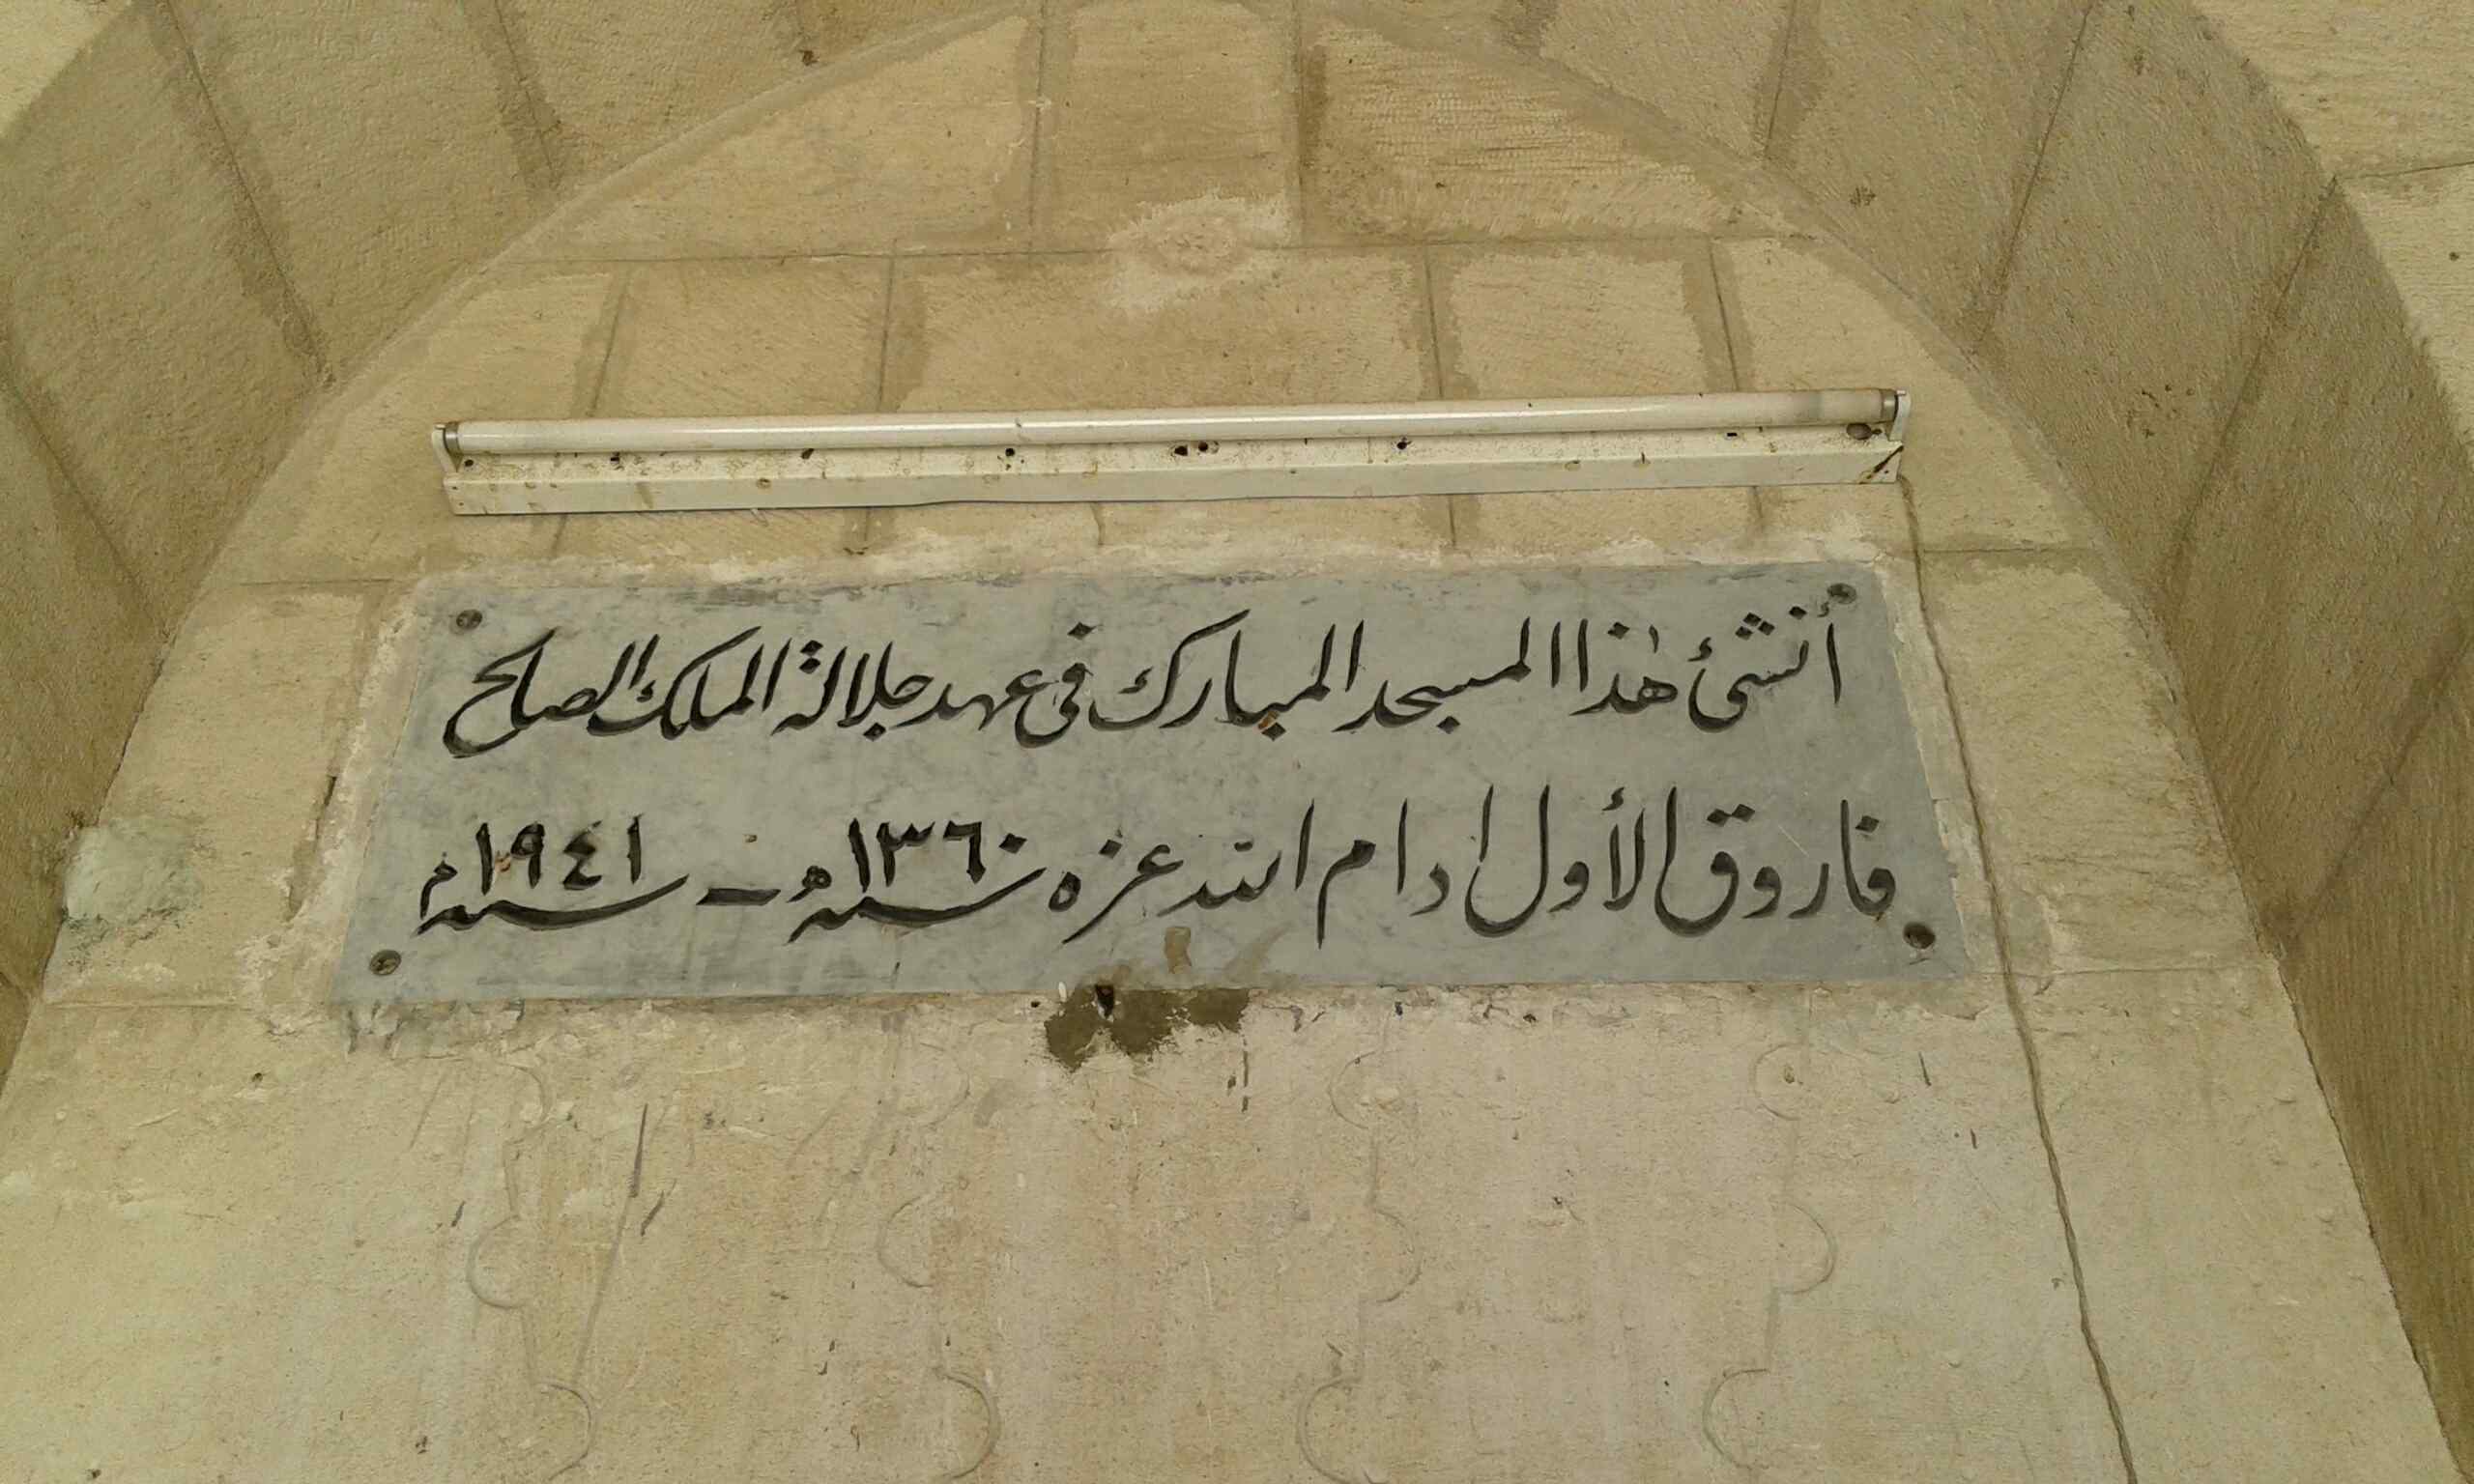 أنشئ هٰذا المسجد المبارك فى عهد جلالة الملك الصالح
فاروق الأول ادام الله عزه سنة ١٣٦٠ه‍ ـ سنة ١٩٤١م